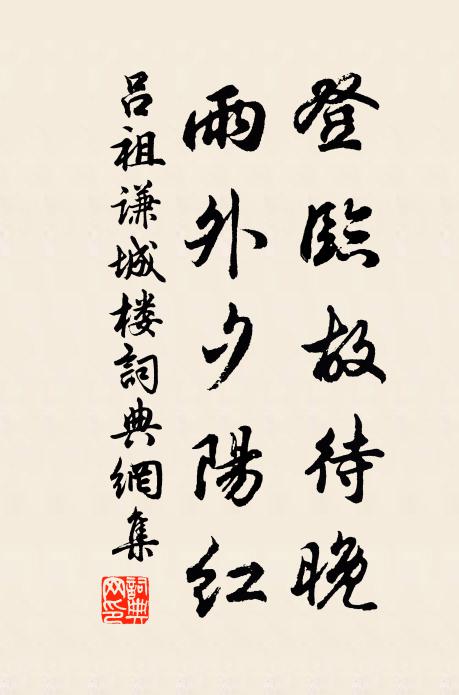 登臨故待晚
雨外夕陽紅
吕祖谦城楼詞典網集
詞典网印